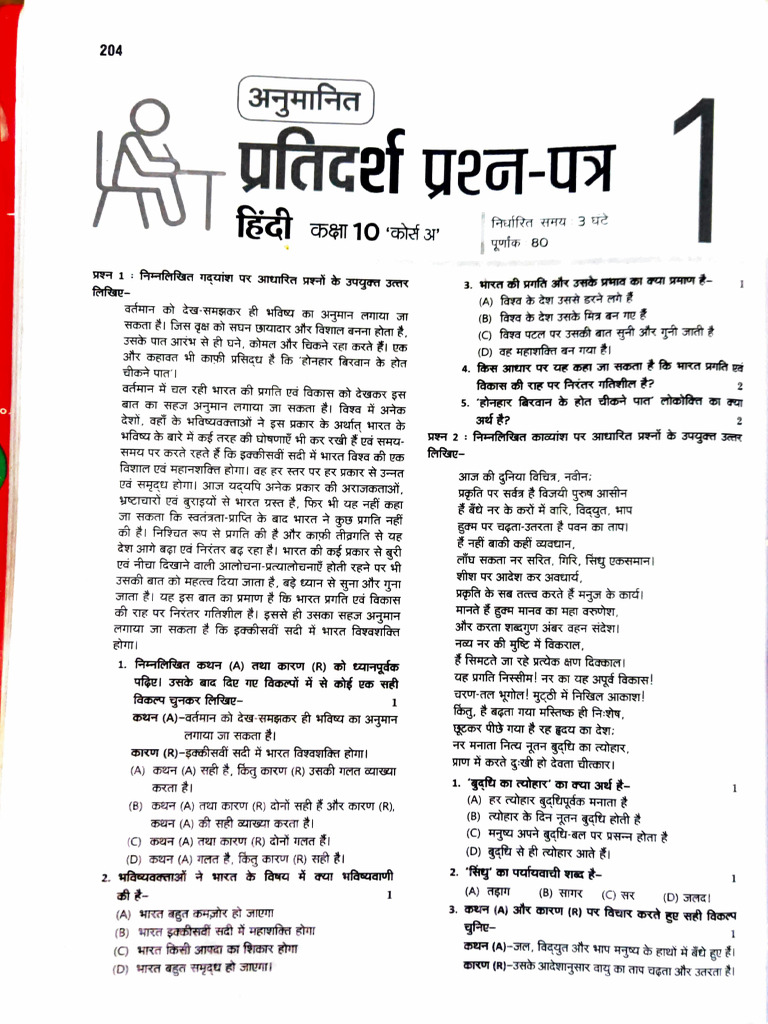 204
अनुमानित
प्रतिदर्श प्रश्न-पत्र
1
हिंदी कक्षा 10 ‘कोर्स अ’
निर्धारित समय : 3 घंटे
पूर्णांक 80
प्रश्न 1 : निम्नलिखित गद्यांश पर आधारित प्रश्नों के उपयुक्त उत्तर
लिखिए–
वर्तमान को देख-समझकर ही भविष्य का अनुमान लगाया जा
सकता है। जिस वृक्ष को सघन छायादार और विशाल बनना होता है,
उसके पात आरंभ से ही घने, कोमल और चिकने रहा करते हैं। एक
और कहावत भी काफ़ी प्रसिद्ध है कि ‘होनहार बिरवान के होत
चीकने पात’।
वर्तमान में चल रही भारत की प्रगति एवं विकास को देखकर इस
बात का सहज अनुमान लगाया जा सकता है। विश्व में अनेक
देशों, वहाँ के भविष्यवक्ताओं ने इस प्रकार के अर्थात् भारत के
भविष्य के बारे में कई तरह की घोषणाएँ भी कर रखी हैं एवं समय-
समय पर करते रहते हैं कि इक्कीसवीं सदी में भारत विश्व की एक
विशाल एवं महानशक्ति होगा। वह हर स्तर पर हर प्रकार से उन्नत
एवं समृद्ध होगा। आज यद्यपि अनेक प्रकार की अराजकताओं,
भ्रष्टाचारों एवं बुराइयों से भारत ग्रस्त है, फिर भी यह नहीं कहा
जा सकता कि स्वतंत्रता-प्राप्ति के बाद भारत ने कुछ प्रगति नहीं
की है। निश्चित रूप से प्रगति की है और काफ़ी तीव्रगति से यह
देश आगे बढ़ा एवं निरंतर बढ़ रहा है। भारत की कई प्रकार से बुरी
एवं नीचा दिखाने वाली आलोचना-प्रत्यालोचनाएँ होती रहने पर भी
उसकी बात को महत्त्व दिया जाता है, बड़े ध्यान से सुना और गुना
जाता है। यह इस बात का प्रमाण है कि भारत प्रगति एवं विकास
की राह पर निरंतर गतिशील है। इससे ही उसका सहज अनुमान
लगाया जा सकता है कि इक्कीसवीं सदी में भारत विश्वशक्ति
होगा।
1. निम्नलिखित कथन (A) तथा कारण (R) को ध्यानपूर्वक
पढ़िए। उसके बाद दिए गए विकल्पों में से कोई एक सही
विकल्प चुनकर लिखिए– 1
कथन (A)–वर्तमान को देख-समझकर ही भविष्य का अनुमान
लगाया जा सकता है।
कारण (R)–इक्कीसवीं सदी में भारत विश्वशक्ति होगा।
(A) कथन (A) सही है, किंतु कारण (R) उसकी गलत व्याख्या
करता है।
(B) कथन (A) तथा कारण (R) दोनों सही हैं और कारण (R),
कथन (A) की सही व्याख्या करता है।
(C) कथन (A) तथा कारण (R) दोनों गलत हैं।
(D) कथन (A) गलत है, किंतु कारण (R) सही है।
2. भविष्यवक्ताओं ने भारत के विषय में क्या भविष्यवाणी
की है– 1
(A) भारत बहुत कमज़ोर हो जाएगा
(B) भारत इक्कीसवीं सदी में महाशक्ति होगा
(C) भारत किसी आपदा का शिकार होगा
(D) भारत बहुत समृद्ध हो जाएगा।
3. भारत की प्रगति और उसके प्रभाव का क्या प्रमाण है– 1
(A) विश्व के देश उससे डरने लगे हैं
(B) विश्व के देश उसके मित्र बन गए हैं
(C) विश्व पटल पर उसकी बात सुनी और गुनी जाती है
(D) वह महाशक्ति बन गया है।
4. किस आधार पर यह कहा जा सकता है कि भारत प्रगति एवं
विकास की राह पर निरंतर गतिशील है? 2
5. ‘होनहार बिरवान के होत चीकने पात’ लोकोक्ति का क्या
अर्थ है? 2
प्रश्न 2 : निम्नलिखित काव्यांश पर आधारित प्रश्नों के उपयुक्त उत्तर
लिखिए–
आज की दुनिया विचित्र, नवीन;
प्रकृति पर सर्वत्र है विजयी पुरुष आसीन
हैं बँधे नर के करों में वारि, विद्युत, भाप
हुक्म पर चढ़ता-उतरता है पवन का ताप।
हैं नहीं बाकी कहीं व्यवधान,
लाँघ सकता नर सरित, गिरि, सिंधु एकसमान।
शीश पर आदेश कर अवधार्य,
प्रकृति के सब तत्त्व करते हैं मनुज के कार्य।
मानते हैं हुक्म मानव का महा वरुणेश,
और करता शब्दगुण अंबर वहन संदेश।
नव्य नर की मुष्टि में विकराल,
हैं सिमटते जा रहे प्रत्येक क्षण दिक्काल।
यह प्रगति निस्सीम! नर का यह अपूर्व विकास!
चरण-तल भूगोल! मुट्ठी में निखिल आकाश!
किंतु, है बढ़ता गया मस्तिष्क ही निःशेष,
छूटकर पीछे गया है रह हृदय का देश;
नर मनाता नित्य नूतन बुद्धि का त्योहार,
प्राण में करते दुःखी हो देवता चीत्कार।
1. ‘बुद्धि का त्योहार’ का क्या अर्थ है– 1
(A) हर त्योहार बुद्धिपूर्वक मनाता है
(B) त्योहार के दिन नूतन बुद्धि होती है
(C) मनुष्य अपने बुद्धि-बल पर प्रसन्न होता है
(D) बुद्धि से ही त्योहार आते हैं।
2. ‘सिंधु’ का पर्यायवाची शब्द है– 1
(A) तड़ाग (B) सागर (C) सर (D) जलद।
3. कथन (A) और कारण (R) पर विचार करते हुए सही विकल्प
चुनिए– 1
कथन (A)–जल, विद्युत और भाप मनुष्य के हाथों में बँधे हुए हैं।
कारण (R)–उसके आदेशानुसार वायु का ताप चढ़ता और उतरता है।